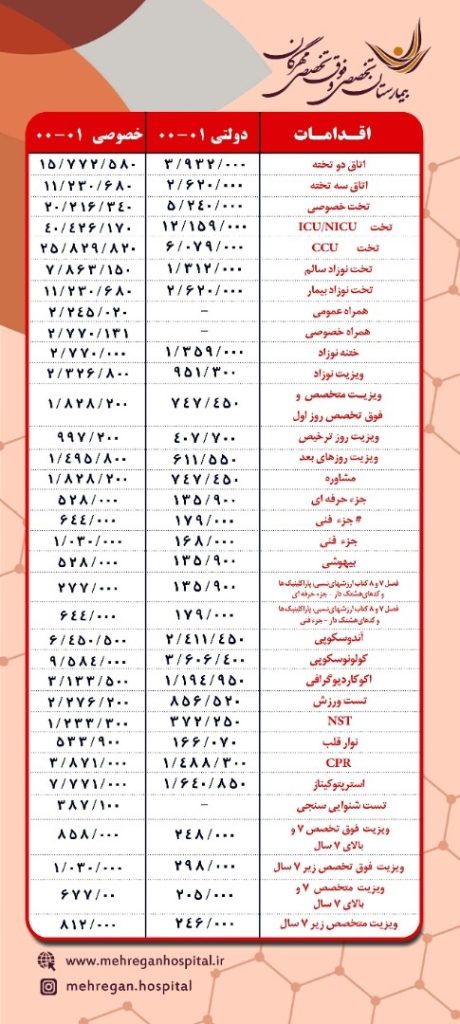 بیمارستان تخصصی و فوق تخصصی مهرگان
اقدامات دولتی ۰۱-۰۰ خصوصی ۰۱-۰۰
اتاق دو تخته ۳/۹۳۲/۰۰۰ ۱۵/۷۷۲/۵۸۰
اتاق سه تخته ۲/۶۲۰/۰۰۰ ۱۱/۲۳۰/۶۸۰
تخت خصوصی ۵/۲۴۰/۰۰۰ ۲۰/۲۱۶/۳۴۰
تخت ICU/NICU ۱۲/۱۵۹/۰۰۰ ۴۰/۴۲۶/۱۷۰
تخت CCU ۶/۰۷۹/۰۰۰ ۲۵/۸۲۹/۸۲۰
تخت نوزاد سالم ۱/۳۱۲/۰۰۰ ۷/۸۶۳/۱۵۰
تخت نوزاد بیمار ۲/۶۲۰/۰۰۰ ۱۱/۲۳۰/۶۸۰
همراه عمومی – ۲/۲۴۵/۰۲۰
همراه خصوصی – ۲/۷۷۰/۱۳۱
ختنه نوزاد ۱/۳۵۹/۰۰۰ ۲/۷۷۰/۰۰۰
ویزیت نوزاد ۹۵۱/۳۰۰ ۲/۳۲۶/۸۰۰
ویزیت متخصص و
فوق تخصص روز اول ۷۴۷/۴۵۰ ۱/۸۲۸/۲۰۰
ویزیت روز ترخیص ۴۰۷/۷۰۰ ۹۹۷/۲۰۰
ویزیت روزهای بعد ۶۱۱/۵۵۰ ۱/۴۹۵/۸۰۰
مشاوره ۷۴۷/۴۵۰ ۱/۸۲۸/۲۰۰
جزء حرفه ای ۱۳۵/۹۰۰ ۵۲۸/۰۰۰
# جزء فنی ۱۷۹/۰۰۰ ۶۴۴/۰۰۰
جزء فنی ۱۶۸/۰۰۰ ۱/۰۳۰/۰۰۰
بیهوشی ۱۳۵/۹۰۰ ۵۲۸/۰۰۰
فصل ۷ و ۸ کتاب ارزشهای نسبی، پاراکلینیک ها
و کدهای هشتک دار - جزء حرفه ای ۱۳۵/۹۰۰ ۲۷۷/۰۰۰
فصل ۷ و ۸ کتاب ارزشهای نسبی، پاراکلینیک ها
و کدهای هشتک دار - جزء فنی ۱۷۹/۰۰۰ ۶۴۴/۰۰۰
آندوسکوپی ۲/۴۱۱/۴۵۰ ۶/۴۵۰/۵۰۰
کولونوسکوپی ۳/۶۰۶/۴۰۰ ۹/۵۸۴/۰۰۰
اکوکاردیوگرافی ۱/۱۹۴/۹۵۰ ۳/۱۳۳/۵۰۰
تست ورزش ۸۵۶/۵۲۰ ۲/۲۷۶/۲۰۰
NST ۳۷۲/۲۵۰ ۱/۲۳۳/۳۰۰
نوار قلب ۱۶۶/۰۷۰ ۵۳۳/۹۰۰
CPR ۱/۴۸۸/۳۰۰ ۳/۸۷۱/۰۰۰
استرپتوکیناز ۱/۶۴۰/۸۵۰ ۷/۷۷۱/۰۰۰
تست شنوایی سنجی – ۳۸۷/۱۰۰
ویزیت فوق تخصص ۷ و
بالای ۷ سال ۲۴۸/۰۰۰ ۸۵۸/۰۰۰
ویزیت فوق تخصص زیر ۷ سال ۲۹۸/۰۰۰ ۱/۰۳۰/۰۰۰
ویزیت متخصص ۷ و
بالای ۷ سال ۲۰۵/۰۰۰ ۶۷۷/۰۰
ویزیت متخصص زیر ۷ سال ۲۴۶/۰۰۰ ۸۱۲/۰۰۰
www.mehreganhospital.ir
mehregan.hospital